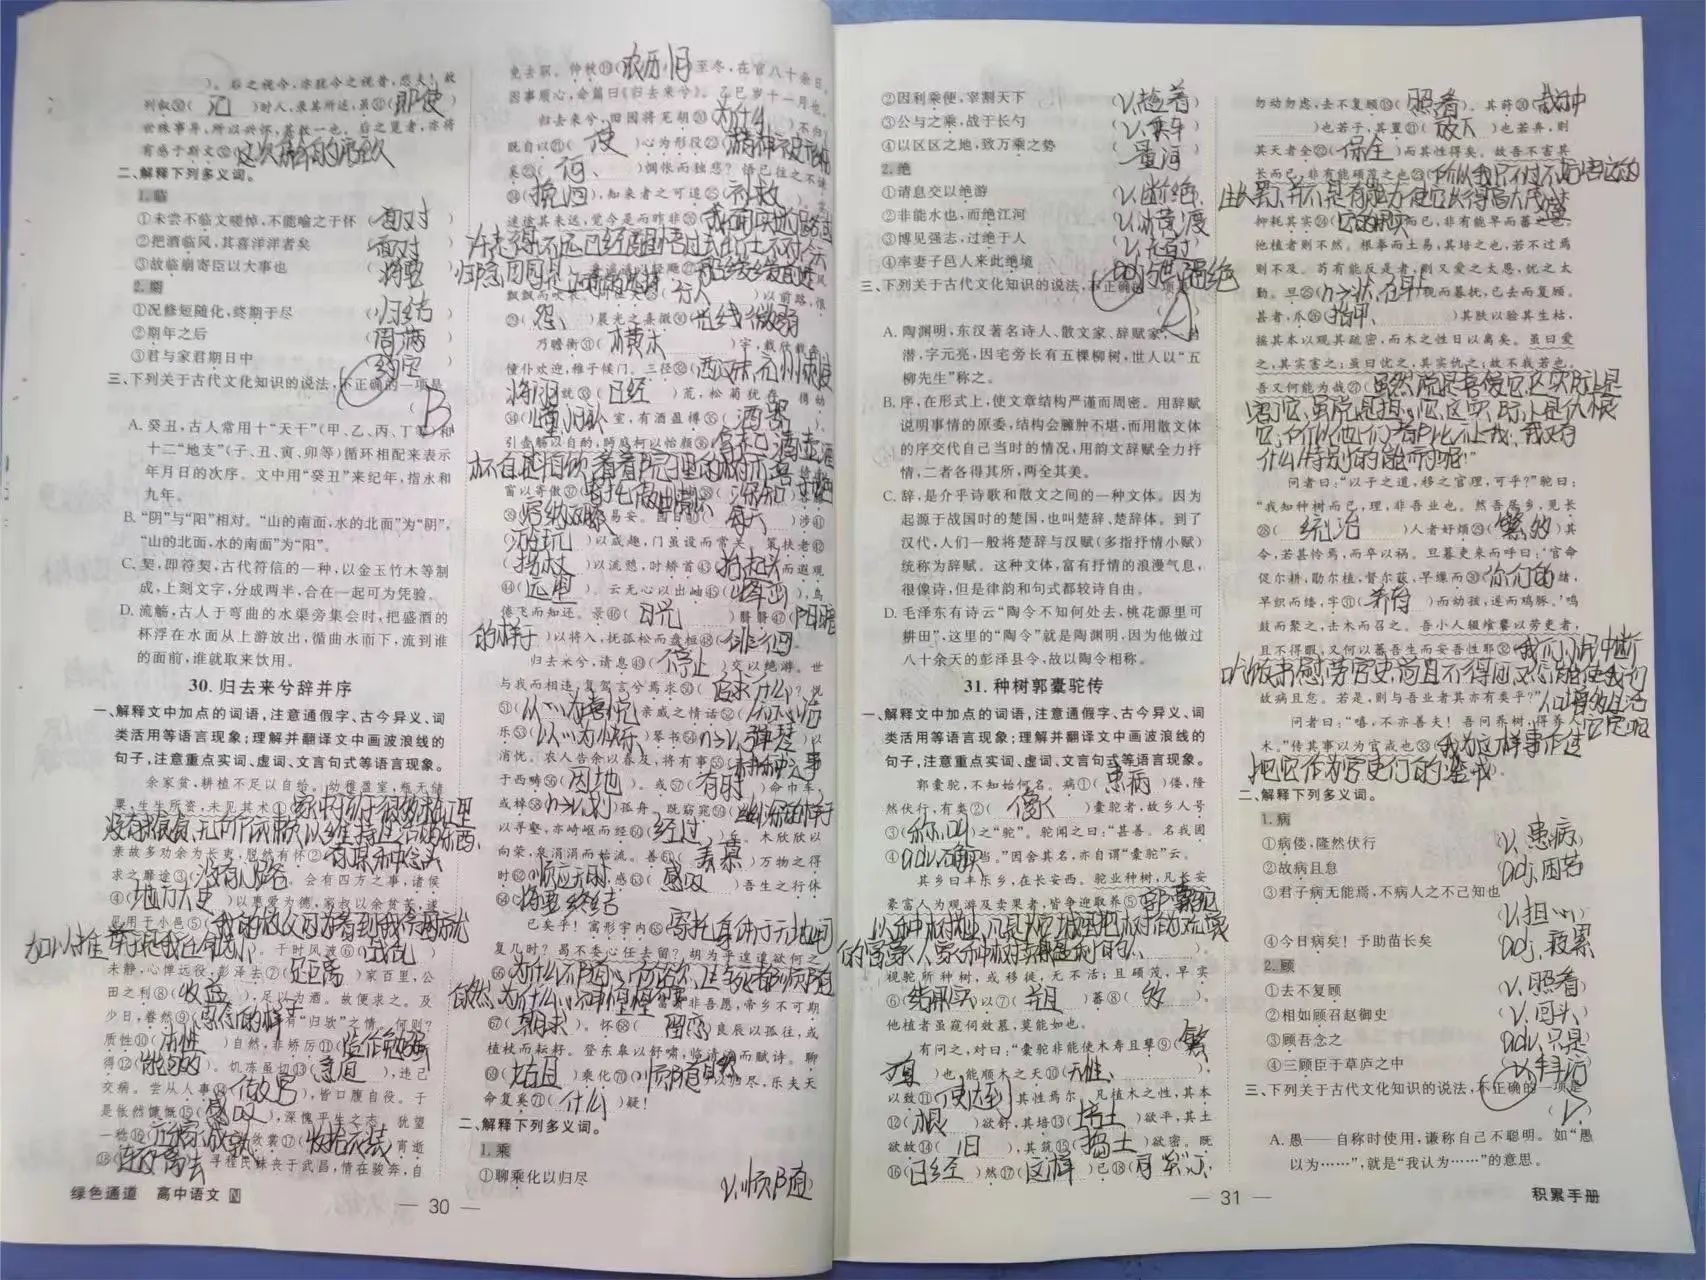 ）。后之视今，亦犹今之视昔，悲夫！故
列叙㉚（ 记 ）时人，录其所述，虽㉛（即使）
世殊事异，所以兴怀，其致一也。后之览者，亦将
有感于斯文㉜（
二、解释下列多义词。
1. 临
①未尝不临文嗟悼，不能喻之于怀 （面对）
②把酒临风，其喜洋洋者矣 （面对）
③故临崩寄臣以大事也 （将要）
2. 期
①况修短随化，终期于尽 （归结）
②期年之后 （周满）
③君与家君期日中 （约定）
三、下列关于古代文化知识的说法，不正确的一项是
（B）
A. 癸丑，古人常用十“天干”（甲、乙、丙、丁等）和
十二“地支”（子、丑、寅、卯等）循环相配来表示
年月日的次序。文中用“癸丑”来纪年，指永和
九年。
B. “阴”与“阳”相对。“山的南面，水的北面”为“阴”，
“山的北面，水的南面”为“阳”。
C. 契，即符契，古代符信的一种，以金玉竹木等制
成，上刻文字，分成两半，合在一起可为凭验。
D. 流觞，古人于弯曲的水渠旁集会时，把盛酒的
杯浮在水面从上游放出，循曲水而下，流到谁
的面前，谁就取来饮用。
30. 归去来兮辞并序
一、解释文中加点的词语，注意通假字、古今异义、词
类活用等语言现象；理解并翻译文中画波浪线的
句子，注意重点实词、虚词、文言句式等语言现象。
余家贫，耕植不足以自给。幼稚盈室，瓶无储
粟，生生所资，未见其术①（
亲故多劝余为长吏，脱然有怀②（有
求之靡途③（没有 ）。会有四方之事，诸侯
④（地方大吏）以惠爱为德，家叔以余贫苦，遂
见用于小邑⑤（
）。于时风波⑥（战乱）
未静，心惮远役，彭泽去⑦（距离）家百里，公
田之利⑧（收益），足以为酒。故便求之。及
少日，眷然⑨（ 的样子）有“归欤”之情。何则？
质性⑩（本性）自然，非矫厉⑪（造作勉强）
得⑫（能够）。饥冻虽切⑬（急迫），违己
交病。尝从人事⑭（做官），皆口腹自役。于
是怅然慷慨⑮（感叹），深愧平生之志。犹望
一稔⑯（ 成熟），当敛裳⑰（收拾衣裳）宵逝
⑱（连夜离去）。寻程氏妹丧于武昌，情在骏奔，自
绿色通道 高中语文 N
— 30 —
免去职。仲秋⑲（农历八月）至冬，在官八十余日。
因事顺心，命篇曰《归去来兮》。乙巳岁十一月也。
归去来兮，田园将芜胡⑳（为什么）不归？
既自以㉑（ 使 ）心为形役㉓（
奚㉓（何、 ）惆怅而独悲？悟已往之不谏
㉔（挽回），知来者之可追㉕（补救）。
实迷途其未远，觉今是而昨非㉖（
飘飘而吹衣。问征夫㉘（行人）以前路，恨
㉙（怨、 ）晨光之熹微㉚（光线微弱）。
乃瞻衡㉛（横木）宇，载欣载奔。
僮仆欢迎，稚子候门。三径㉜（
）就㉝（已经）荒，松菊犹存。
㉞（ ）室，有酒盈樽㉟（酒器）。
引壶觞以自酌，眄庭柯以怡颜㊱（
窗以寄傲㊲（
）易安。园日㊵（每天）涉㊶
（游玩）以成趣，门虽设而常关。策扶老㊷
（拐杖）以流憩，时矫首㊸（抬起头）而遐观
㊹（远望）。云无心以出岫㊺（峰峦），鸟
倦飞而知还。景㊻（日光）翳翳㊼（阴暗
的样子）以将入，抚孤松而盘桓㊽（徘徊）。
归去来兮，请息㊾（停止）交以绝游。世
与我而相违，复驾言兮焉求㊿（追求什么）？悦
（以……为喜悦）亲戚之情话
乐（以……为快乐）琴书（n→v 弹琴）以
消忧。农人告余以春及，将有事（耕种之事）
于西畴（田地）。或（有时）命巾车，
或棹（n→v 划）孤舟。既窈窕（
以寻壑，亦崎岖而经（经过）丘。木欣欣以
向荣，泉涓涓而始流。善（羡慕）万物之得
时（ ），感（感叹）吾生之行休
（将要终结）。
已矣乎！寓形宇内（
复几时？曷不委心任去留？胡为乎遑遑欲何之
富贵非吾愿，帝乡不可期
（期求）。怀（留恋）良辰以孤往，或
植杖而耘耔。登东皋以舒啸，临清流而赋诗。聊
（姑且）乘化（顺随自然）以归尽，乐夫天
命复奚（什么）疑！
二、解释下列多义词。
1. 乘
①聊乘化以归尽 （v.顺随）
②因利乘便，宰割天下 （v.趁着）
③公与之乘，战于长勺 （v.乘车）
④以区区之地，致万乘之势 （量词）
2. 绝
①请息交以绝游 （v.断绝）
②非能水也，而绝江河 （v.横渡）
③博见强志，过绝于人 （v.超过）
④率妻子邑人来此绝境 （adj.与世隔绝）
三、下列关于古代文化知识的说法，不正确的一项是
A. 陶渊明，东汉著名诗人、散文家、辞赋家，一名
潜，字元亮，因宅旁长有五棵柳树，世人以“五
柳先生”称之。
B. 序，在形式上，使文章结构严谨而周密。用辞赋
说明事情的原委，结构会臃肿不堪，而用散文体
的序交代自己当时的情况，用韵文辞赋全力抒
情，二者各得其所，两全其美。
C. 辞，是介乎诗歌和散文之间的一种文体。因为
起源于战国时的楚国，也叫楚辞、楚辞体。到了
汉代，人们一般将楚辞与汉赋（多指抒情小赋）
统称为辞赋。这种文体，富有抒情的浪漫气息，
很像诗，但是律韵和句式都较诗自由。
D. 毛泽东有诗云“陶令不知何处去，桃花源里可
耕田”，这里的“陶令”就是陶渊明，因为他做过
八十余天的彭泽县令，故以陶令相称。
31. 种树郭橐驼传
一、解释文中加点的词语，注意通假字、古今异义、词
类活用等语言现象；理解并翻译文中画波浪线的
句子，注意重点实词、虚词、文言句式等语言现象。
郭橐驼，不知始何名。病①（患病）偻，隆
然伏行，有类②（ 像 ）橐驼者，故乡人号
③（称叫）之“驼”。驼闻之曰：“甚善。名我固
④（adv.确实）当。”因舍其名，亦自谓“橐驼”云。
其乡曰丰乐乡，在长安西。驼业种树，凡长安
豪富人为观游及卖果者，皆争迎取养⑤（郭橐驼
以种树为业，
视驼所种树，或移徙，无不活；且硕茂，早实
⑥（结果实）以⑦（并且）蕃⑧（ 多 ）。
他植者虽窥伺效慕，莫能如也。
有问之，对曰：“橐驼非能使木寿且孳⑨（繁
）也，能顺木之天⑩（天性、 ），
以致⑪（使达到）其性焉尔。凡植木之性，其本
⑫（ 根 ）欲舒，其培⑬（培土）欲平，其土
欲故⑭（ 旧 ），其筑⑮（捣土）欲密。既
⑯（已经）然⑰（这样）已⑱（
勿动勿虑，去不复顾⑲（照看）。其莳⑳（栽种
）也若子，其置㉑（放下）也若弃，则
其天者全㉒（保全）而其性得矣。故吾不害其
长而已，非有能硕茂之也㉓（所以我只不过不妨害它的
生长罢了，并不是有能力使它长得高大茂盛
抑耗其实㉔（它的果实）而已，非有能早而蕃之也。
他植者则不然。根拳而土易，其培之也，若不过焉
则不及。苟有能反是者，则又爱之太恩，忧之太
勤。旦㉕（n→状，在早上）视而暮抚，已去而复顾。
甚者，爪㉖（指甲、 ）其肤以验其生枯，
摇其本以观其疏密，而木之性日以离矣。虽曰爱
之，其实害之；虽曰忧之，其实仇之；故不我若也。
吾又何能为哉㉗（虽然说是喜爱它，这实际上是
害了它，虽说是担心它，这实际上是仇恨
它，所以他们都比不上我，我又有
什么特别的能耐呢！”
问者曰：“以子之道，移之官理，可乎？”驼曰：
“我知种树而已，理，非吾业也。然吾居乡，见长
㉘（ 统治 ）人者好烦㉙（繁多）其
令，若甚怜焉，而卒以祸。旦暮吏来而呼曰：‘官命
促尔耕，勖尔植，督尔获，早缫而㉚（你们的）绪，
早织而缕，字㉛（养育）而幼孩，遂而鸡豚。’鸣
鼓而聚之，击木而召之。吾小人辍飧饔以劳吏者，
且不得暇，又何以蕃吾生而安吾性耶㉜（我们小百姓中断
吃饭来慰劳官吏，尚且不得闲，又怎能使我们
故病且怠。若是，则与吾业者其亦有类乎？”
问者曰：“嘻，不亦善夫！吾问养树，得养人
术。”传其事以为官戒也㉝（我为这样事作传
把它作为官吏们的鉴戒）。
二、解释下列多义词。
1. 病
①病偻，隆然伏行 （v.患病）
②故病且怠 （adj.困苦）
③君子病无能焉，不病人之不己知也
（v.担心）
④今日病矣！予助苗长矣 （adj.疲累）
2. 顾
①去不复顾 （v.照看）
②相如顾召赵御史 （v.回头）
③顾吾念之 （adv.只是）
④三顾臣于草庐之中 （v.拜访）
三、下列关于古代文化知识的说法，不正确的一项是
A. 愚——自称时使用，谦称自己不聪明。如“愚
以为……”，就是“我认为……”的意思。
— 31 —
积累手册